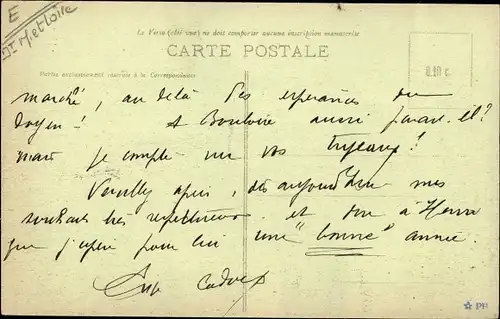 E
Le Verso (côté vue) ne doit comporter aucune inscription manuscrite
CARTE POSTALE
Partie exclusivement réservée à la Correspondance
0.10 c
marché, au delà des espérances du
doyen! A Bouloire aussi paraît-il?
mais je compte sur vos
Veuillez agréer, dès aujourd'hui mes
souhaits très respectueux et dire à
que j'espère pour lui une "bonne" année.